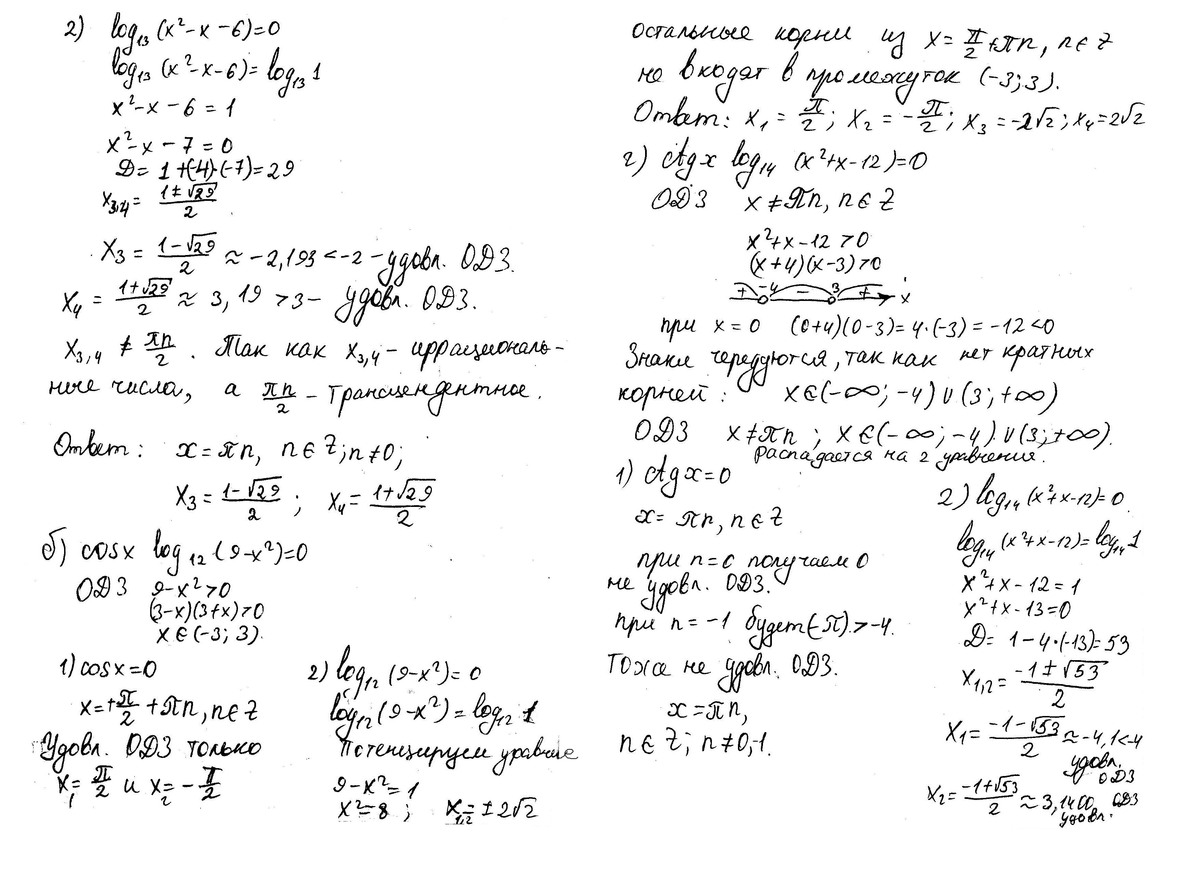 2) log₁₃(x²-x-6)=0
log₁₃(x²-x-6)=log₁₃1
x²-x-6=1
x²-x-7=0
D=1+(-4)·(-7)=29
x₃,₄= (1±√29)/2
x₃ = (1-√29)/2 ≈ -2,193 < -2 - удовл. ОДЗ.
x₄ = (1+√29)/2 ≈ 3,19 > 3 - удовл. ОДЗ.
x₃,₄ ≠ πn/2. Так как x₃,₄ - иррациональ-
ные числа, а πn/2 - трансцендентное.
Ответ: x=πn, n∈Z; n≠0;
x₃ = (1-√29)/2; x₄ = (1+√29)/2
б) cosx log₁₂(9-x²)=0
ОДЗ 9-x²>0
(3-x)(3+x)>0
x∈(-3; 3).
1) cosx=0
x=+π/2+πn, n∈Z
Удовл. ОДЗ только
x₁= π/2 и x₂= -π/2
2) log₁₂(9-x²)=0
log₁₂(9-x²)=log₁₂1
9-x²=1
x²=8; x₁,₂=±2√2
Остальные корни из x=π/2+πn, n∈Z
не входят в промежуток (-3;3).
Ответ: x₁= π/2; x₂= -π/2; x₃=-2√2; x₄=2√2
г) ctgx log₁₄(x²+x-12)=0
ОДЗ x≠πn, n∈Z
x²+x-12>0
(x+4)(x-3)>0
+ -4 - 3 + x
при x=0 (0+4)(0-3)=4·(-3)=-12<0
Знаки чередуются, так как нет кратных
корней: x∈(-∞; -4)∪(3; +∞)
ОДЗ x≠πn; x∈(-∞; -4)∪(3; +∞).
Распадается на 2 уравнения.
1) ctgx=0
x= πn, n∈Z
при n=0 получаем 0
не удовл. ОДЗ.
при n=-1 будет (-π)>-4.
Тоже не удовл. ОДЗ.
x=πn,
n∈Z; n≠0,-1.
2) log₁₄(x²+x-12)=0.
log₁₄(x²+x-12)=log₁₄1
x²+x-12=1
x²+x-13=0
D= 1-4·(-13)=53
x₁,₂= (-1±√53)/2
x₁= (-1-√53)/2 ≈-4,1<-4
удовл.
ОДЗ
x₂= (-1+√53)/2 ≈3,1400 ОДЗ
удовл.